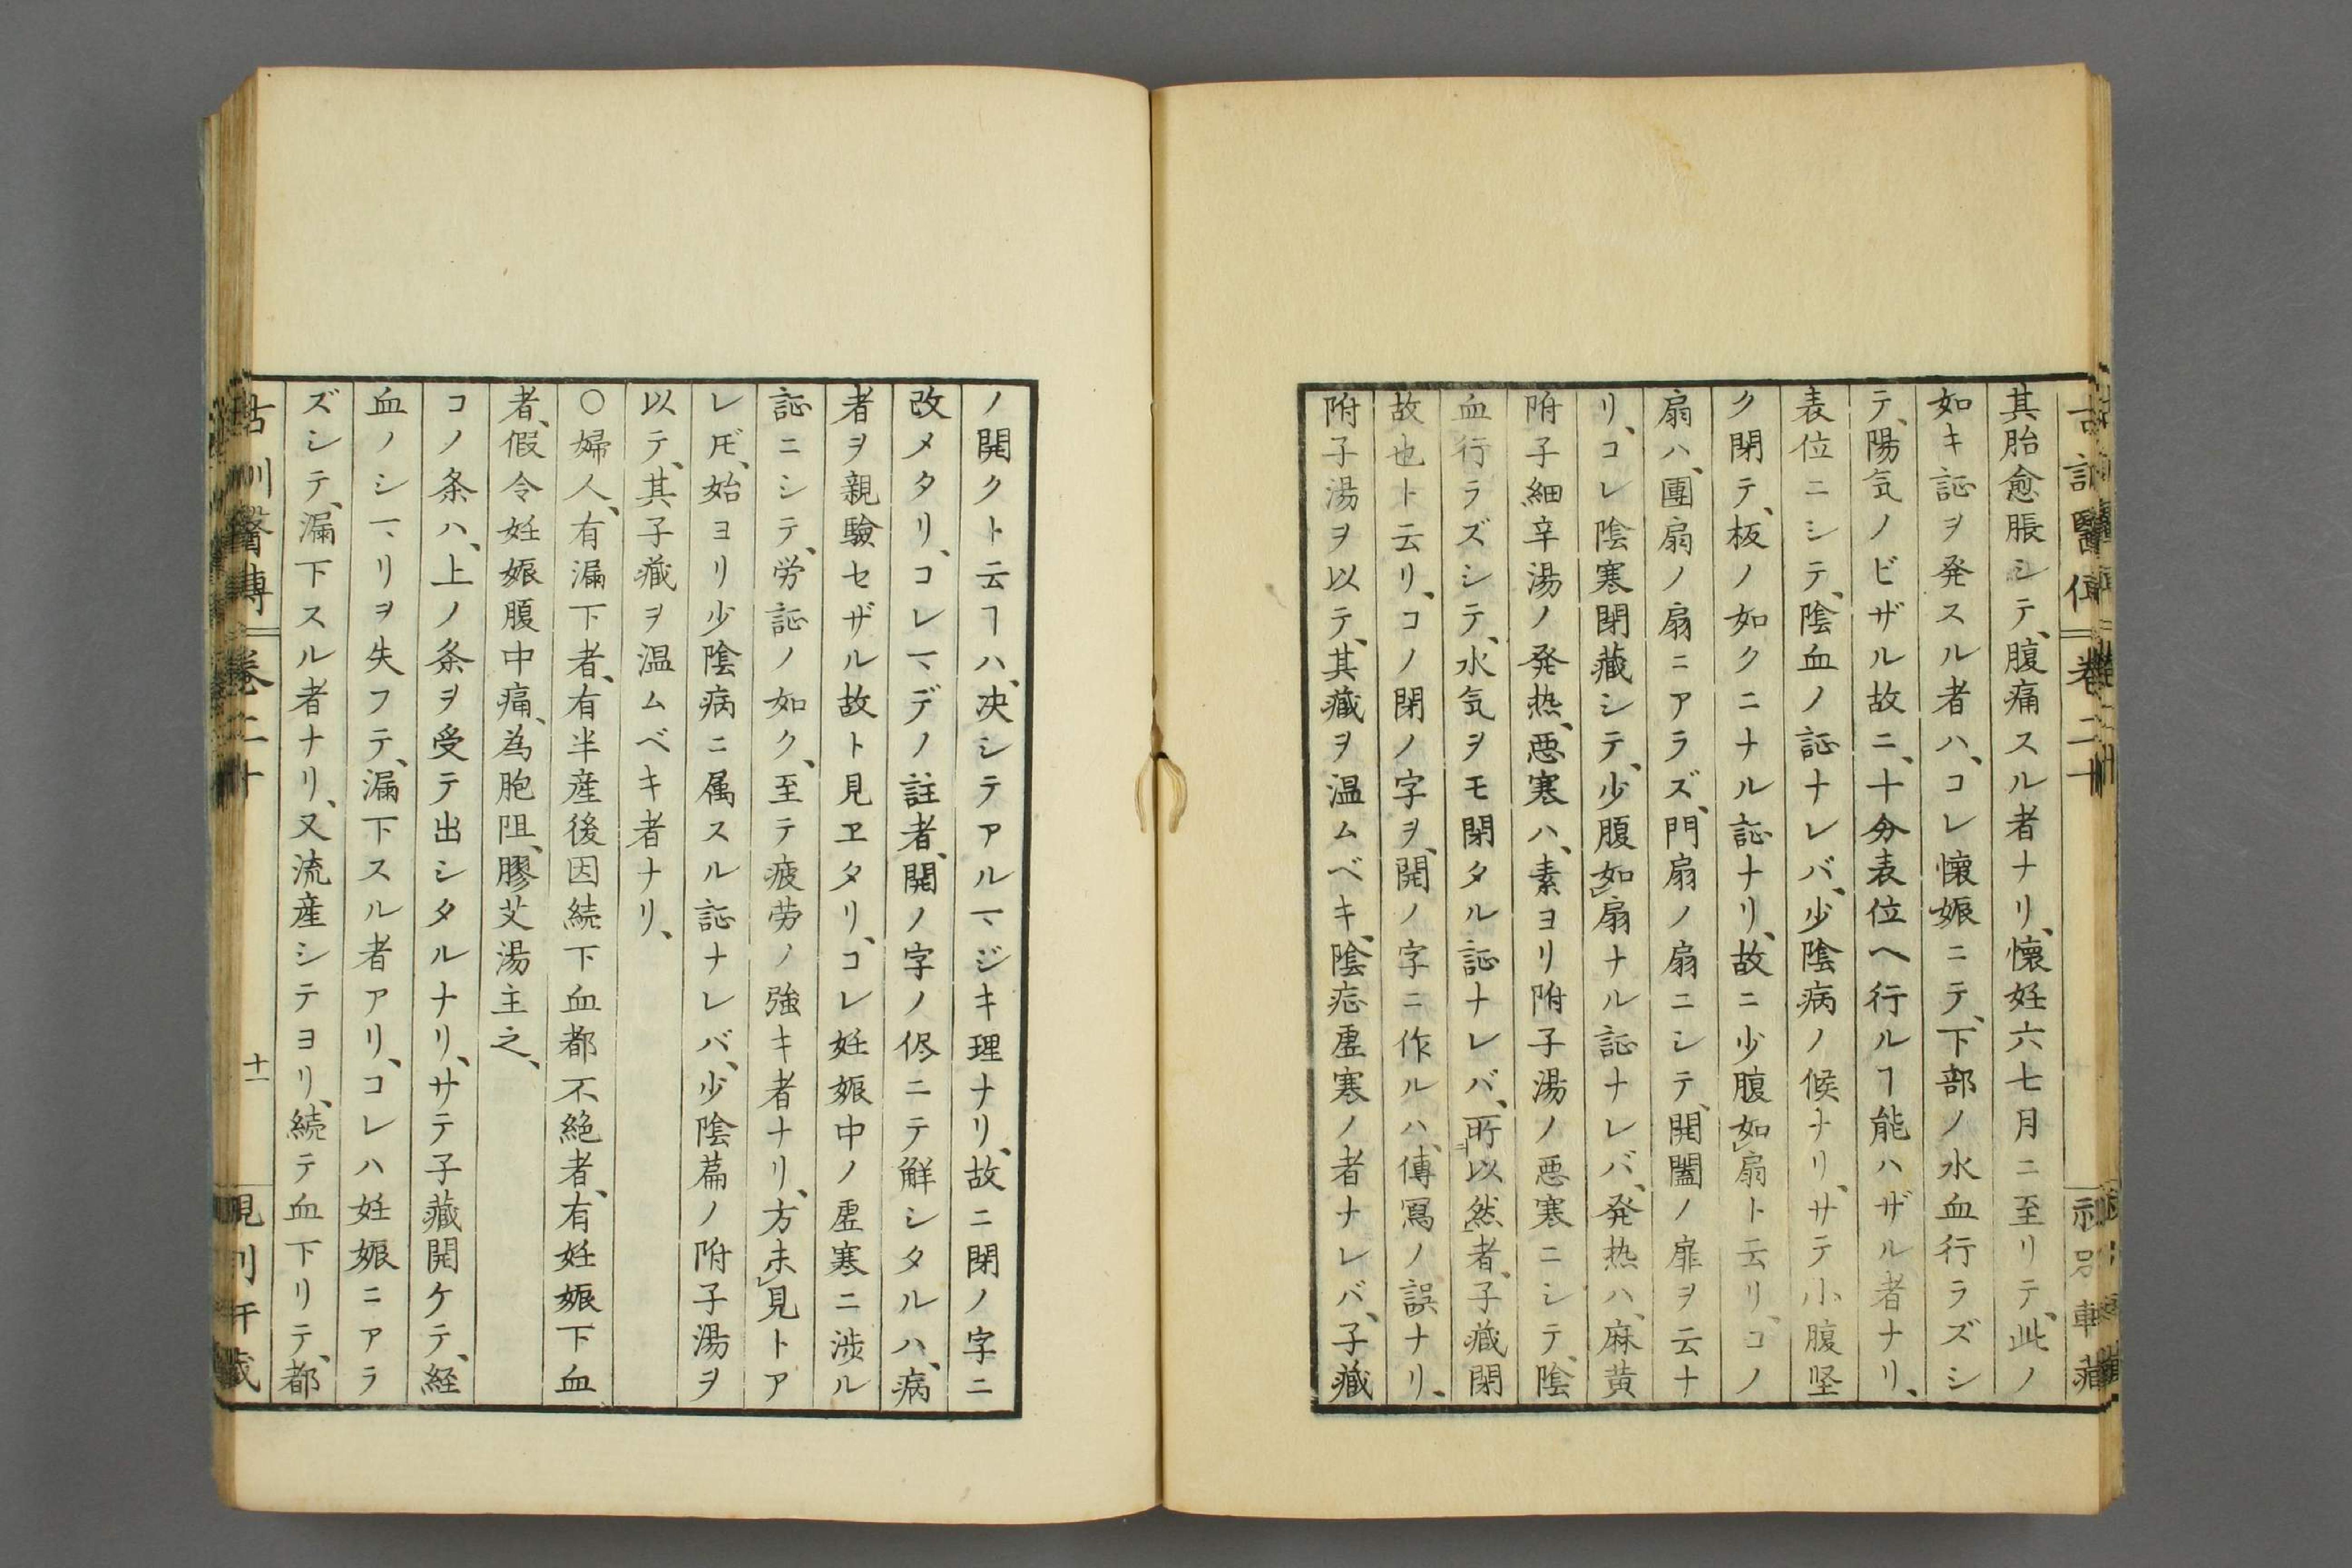 其胎愈脹シテ、腹痛スル者ナリ、懷妊六七月ニ至リテ、此ノ
如キ証ヲ発スル者ハ、コレ懷娠ニテ、下部ノ水血行ラズシ
テ、陽気ノビザル故ニ、十分表位ヘ行ルヿ能ハザル者ナリ、
表位ニシテ、陰血ノ証ナレバ、少陰病ノ候ナリ、サテ小腹坚
ク閉テ、板ノ如クニナル証ナリ、故ニ少腹如扇ト云リ、コノ
扇ハ、團扇ノ扇ニアラズ、門扇ノ扇ニシテ、開闔ノ扉ヲ云ナ
リ、コレ陰寒閉藏シテ、少腹如扇ナル証ナレバ、発热ハ、麻黄
附子細辛湯ノ発热、悪寒ハ、素ヨリ附子湯ノ悪寒ニシテ、陰
血行ラズシテ、水気ヲモ閉タル証ナレバ、所以然者、子藏閉
故也ト云リ、コノ閉ノ字ヲ、開ノ字ニ作ルハ、傳冩ノ誤ナリ、
附子湯ヲ以テ、其藏ヲ温ムベキ、陰症虛寒ノ者ナレバ、子藏
ノ開クト云ヿハ、决シテアルマジキ理ナリ、故ニ閉ノ字ニ
改メタリ、コレマデノ註者、開ノ字ノ侭ニテ解シタルハ、病
者ヲ親驗セザル故ト見ヱタリ、コレ妊娠中ノ虛寒ニ渉ル
証ニシテ、労証ノ如ク、至テ疲労ノ強キ者ナリ、方未見トア
レ𪜈、始ヨリ少陰病ニ属スル証ナレバ、少陰篇ノ附子湯ヲ
以テ、其子藏ヲ温ムベキ者ナリ、
○婦人、有漏下者、有半産後因続下血都不絶者、有妊娠下血
者、假令妊娠腹中痛、為胞阻、膠艾湯主之、
コノ条ハ、上ノ条ヲ受テ出シタルナリ、サテ子藏開ケテ、経
血ノシマリヲ失フテ、漏下スル者アリ、コレハ妊娠ニアラ
ズシテ、漏下スル者ナリ、又流産シテヨリ、続テ血下リテ、都
卷二十
十一